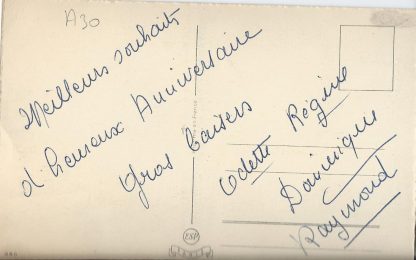 A30
Meilleurs souhaits
d'heureux Anniversaire
Gros baisers
Odette Régine
Dominique
Raymond